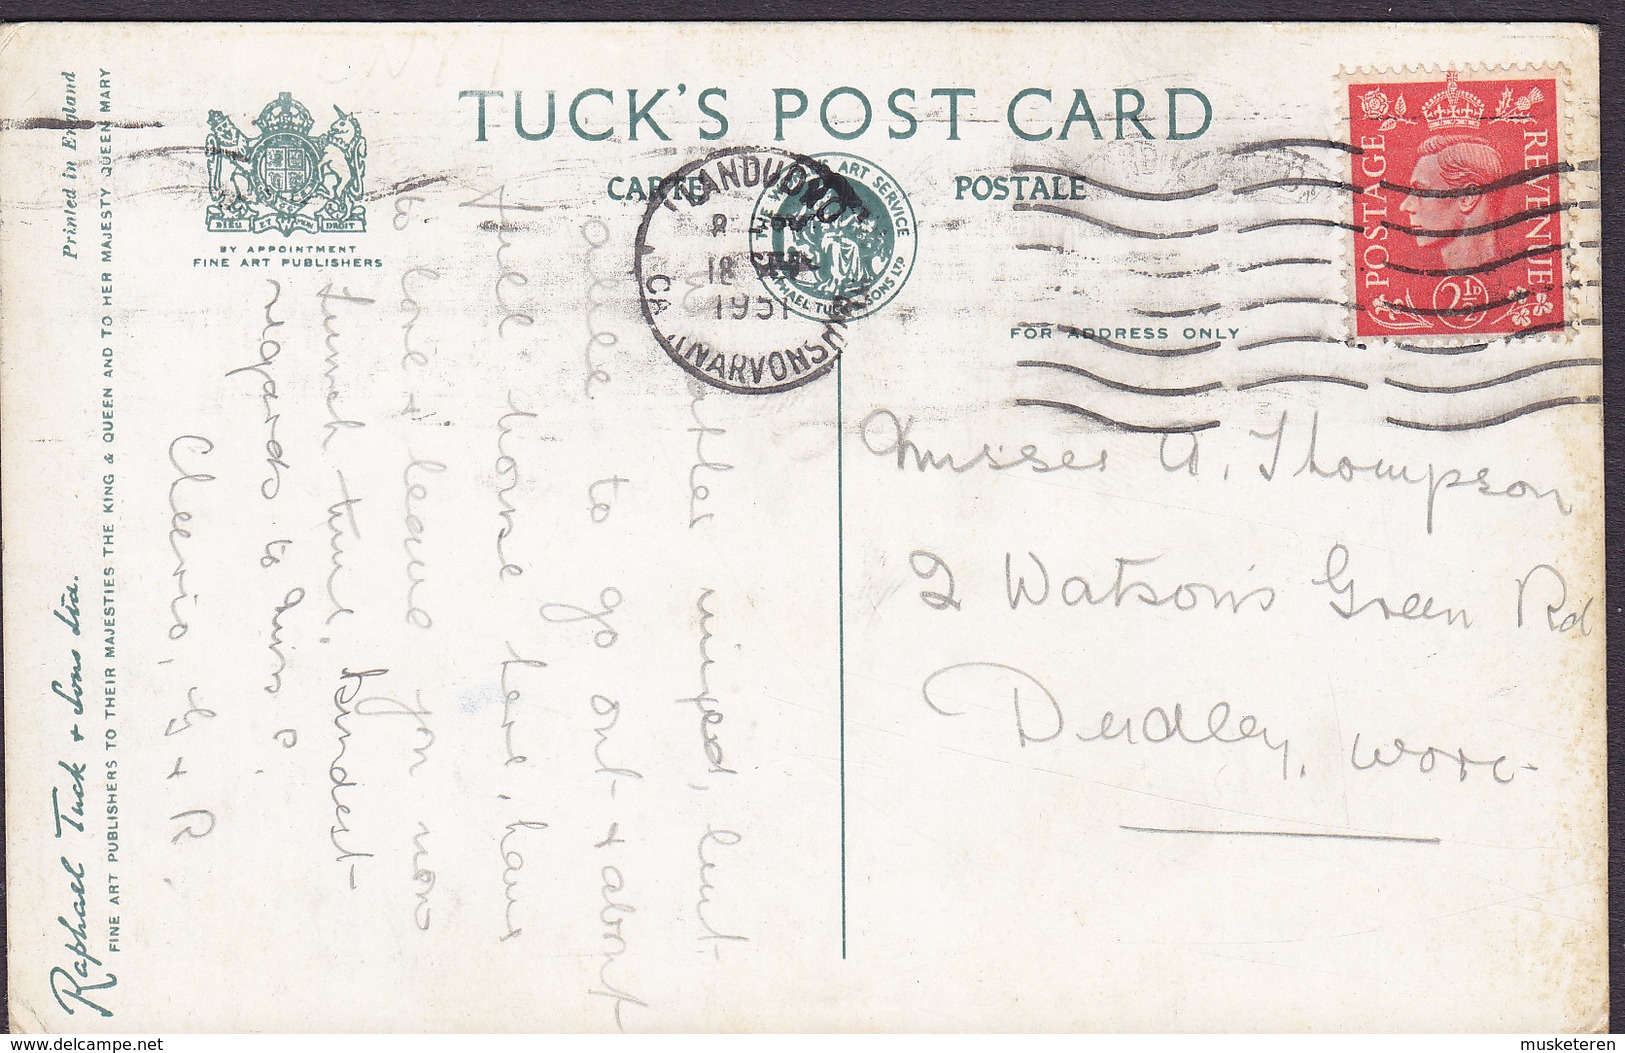 TUCK'S POST CARD
CARTE POSTALE
BY APPOINTMENT
FINE ART PUBLISHERS
DIEU ET MON DROIT
LANDUDNO
18 SEP
1951
CAERNARVONSHIRE
ART SERVICE
RAPHAEL TUCK & SONS LTD
POSTAGE REVENUE
2½D
FOR ADDRESS ONLY
Printed in England
Raphael Tuck & Sons Ltd.
FINE ART PUBLISHERS TO THEIR MAJESTIES THE KING & QUEEN AND TO HER MAJESTY QUEEN MARY
Weather mixed, but
able to go out & about
full house here, have
to love & leave you now
lunch time, kindest
regards to Miss P.
Cheerio, G & R.
Misses A. Thompson
2 Watson's Green Rd
Dudley, Worc-
delcampe.net
musketeren